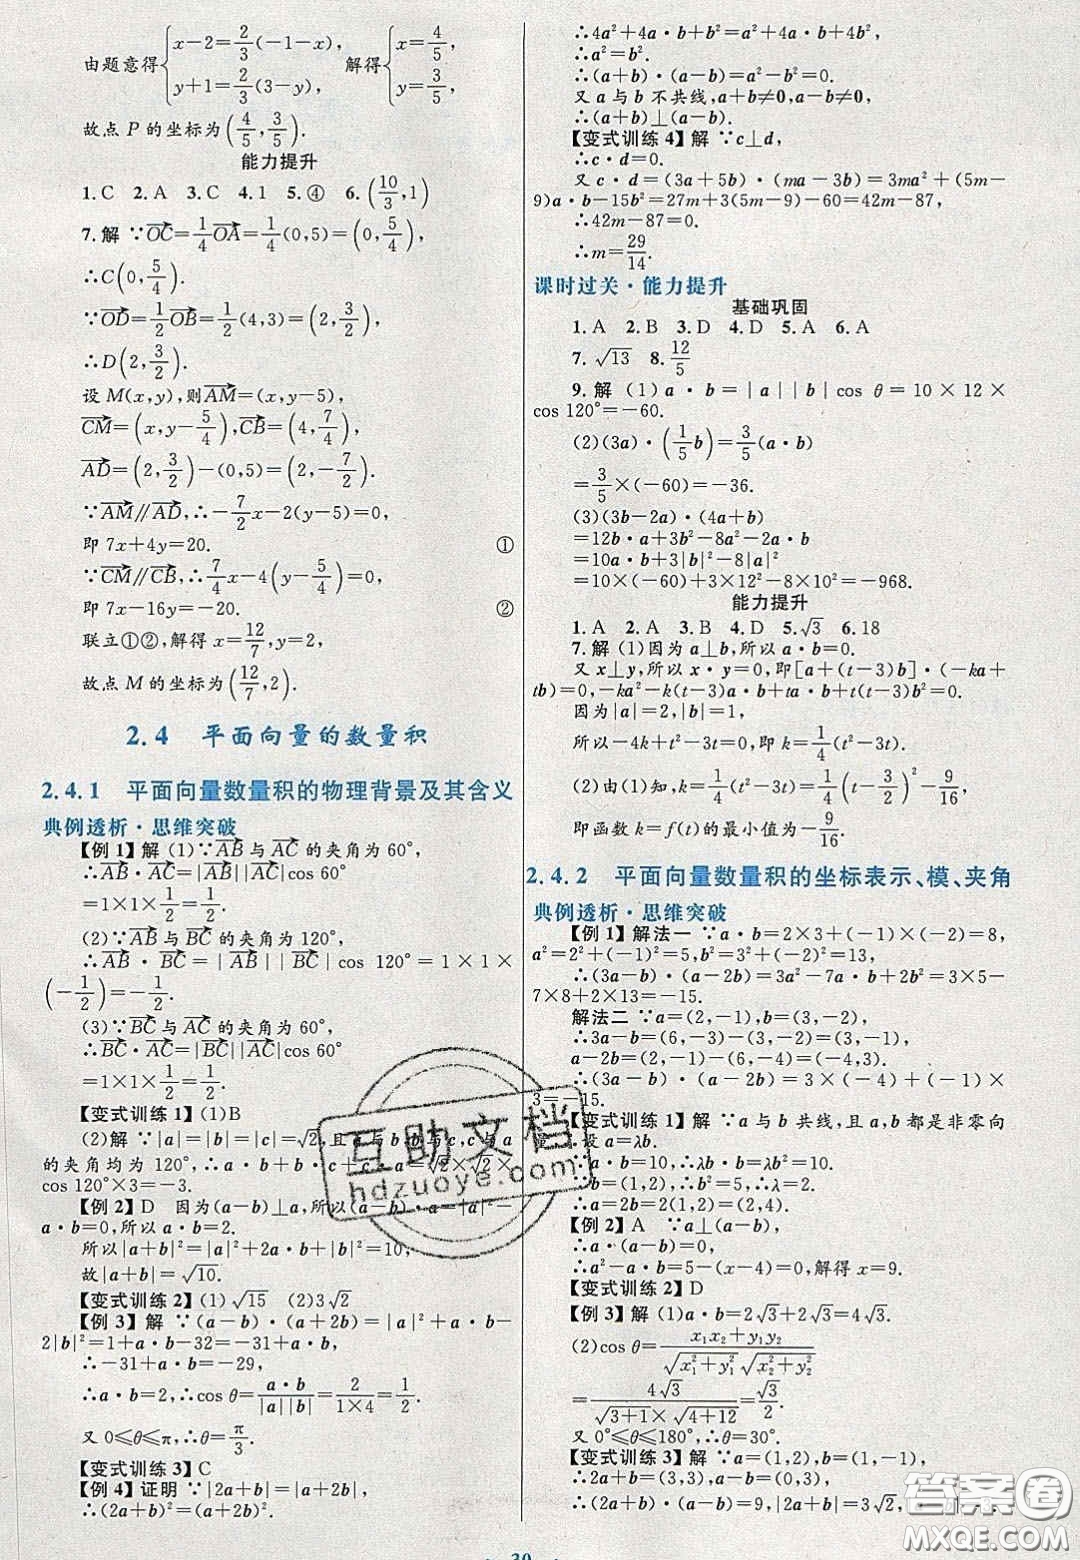 由题意得{x-2=2/3(-1-x), y+1=2/3(3-y), 解得{x=4/5, y=3/5,
故点 P 的坐标为(4/5,3/5).
能力提升
1.C 2.A 3.C 4.1 5.④ 6.(10/3,1)
7.解 ∵OC=1/4OA=1/4(0,5)=(0,5/4),
∴C(0,5/4).
∵OD=1/2OB=1/2(4,3)=(2,3/2),
∴D(2,3/2).
设 M(x,y),则AM=(x,y-5),
CM=(x,y-5/4),CB=(4,7/4),
AD=(2,3/2)-(0,5)=(2,-7/2).
∵AM∥AD,∴-7/2x-2(y-5)=0,
即 7x+4y=20. ①
∵CM∥CB,∴7/4x-4(y-5/4)=0,
即 7x-16y=-20. ②
联立①②,解得 x=12/7,y=2,
故点 M 的坐标为(12/7,2).
2.4 平面向量的数量积
2.4.1 平面向量数量积的物理背景及其含义
典例透析·思维突破
【例 1】解 (1)∵AB与AC的夹角为 60°,
∴AB·AC=|AB||AC|cos 60°
=1×1×1/2=1/2.
(2)∵AB与BC的夹角为 120°,
∴AB·BC=|AB||BC|cos 120°=1×1×
(-1/2)=-1/2.
(3)∵BC与AC的夹角为 60°,
∴BC·AC=|BC||AC|cos 60°
=1×1×1/2=1/2.
【变式训练 1】(1)B
(2)解 ∵|a|=|b|=|c|=√2,且a与b,b与c,c与a
的夹角均为 120°,∴a·b+b·c+c·a=√2×√2×
cos 120°×3=-3.
【例 2】D 因为(a-b)⊥a,所以(a-b)·a=|a|²-
a·b=0,所以 a·b=2.
所以|a+b|²=|a|²+2a·b+|b|²=10,
故|a+b|=√10.
【变式训练 2】(1)√15 (2)3√2
【例 3】解 ∵(a-b)·(a+2b)=|a|²+a·b-
2|b|²=1+a·b-32=-31+a·b,
∴-31+a·b=-29,
∴a·b=2,∴cos θ=a·b/|a||b|=2/1×4=1/2.
又 0≤θ≤π,∴θ=π/3.
【变式训练 3】C
【例 4】证明 ∵|2a+b|=|a+2b|,
∴(2a+b)²=(a+2b)².
∴4a²+4a·b+b²=a²+4a·b+4b²,
∴a²=b².
∴(a+b)·(a-b)=a²-b²=0.
又 a 与 b 不共线,a+b≠0,a-b≠0,
∴(a+b)⊥(a-b).
【变式训练 4】解 ∵c⊥d,
∴c·d=0.
又 c·d=(3a+5b)·(ma-3b)=3ma²+(5m-
9)a·b-15b²=27m+3(5m-9)-60=42m-87,
∴42m-87=0.
∴m=29/14.
课时过关·能力提升
基础巩固
1.A 2.B 3.D 4.D 5.A 6.A
7.√13 8.12/5
9.解 (1)a·b=|a||b|cos θ=10×12×
cos 120°=-60.
(2)(3a)·(1/5b)=3/5(a·b)
=3/5×(-60)=-36.
(3)(3b-2a)·(4a+b)
=12b·a+3b²-8a²-2a·b
=10a·b+3|b|²-8|a|²
=10×(-60)+3×12²-8×10²=-968.
能力提升
1.A 2.A 3.B 4.D 5.√3 6.18
7.解 (1)因为 a⊥b,所以 a·b=0.
又 x⊥y,所以 x·y=0,即[a+(t-3)b]·(-ka+
tb)=0,-ka²-k(t-3)a·b+ta·b+t(t-3)b²=0.
因为|a|=2,|b|=1,
所以-4k+t(t-3)=0,即 k=1/4(t²-3t).
(2)由(1)知,k=1/4(t²-3t)=1/4(t-3/2)²-9/16,
即函数 k=f(t)的最小值为-9/16.
2.4.2 平面向量数量积的坐标表示、模、夹角
典例透析·思维突破
【例 1】解法一 ∵a·b=2×3+(-1)×(-2)=8,
a²=2²+(-1)²=5,b²=3²+(-2)²=13,
∴(3a-b)·(a-2b)=3a²-7a·b+2b²=3×5-
7×8+2×13=-15.
解法二 ∵a=(2,-1),b=(3,-2),
∴3a-b=(6,-3)-(3,-2)=(3,-1),
a-2b=(2,-1)-(6,-4)=(-4,3).
∴(3a-b)·(a-2b)=3×(-4)+(-1)×
3=-15.
【变式训练 1】解 ∵a与b 共线,且 a,b 都是非零向
量,∴设 a=λb.
∵a·b=10,∴λb·b=λb²=10.
∵b=(1,2),∴b²=5,∴λ=2.
∴a=2b=2(1,2)=(2,4).
【例 2】A ∵a⊥(a-b),
∴a·(a-b)=0.
∴a²-a·b=5-(x-4)=0,解得 x=9.
【变式训练 2】D
【例 3】解 (1)a·b=2√3+2√3=4√3.
(2)cos θ=x₁x₂+y₁y₂/√x₁²+y₁²√x₂²+y₂²
=4√3/√3+1×√4+12=√3/2.
又 0°≤θ≤180°,∴θ=30°.
【变式训练 3】解 ∵a=(1,2),b=(1,-1),
∴2a+b=(3,3),a-b=(0,3).
∴(2a+b)·(a-b)=9,|2a+b|=3√2,|a-b|=3.
30
互助文档
hdzuoye.com
答案圈
MXQE.COM